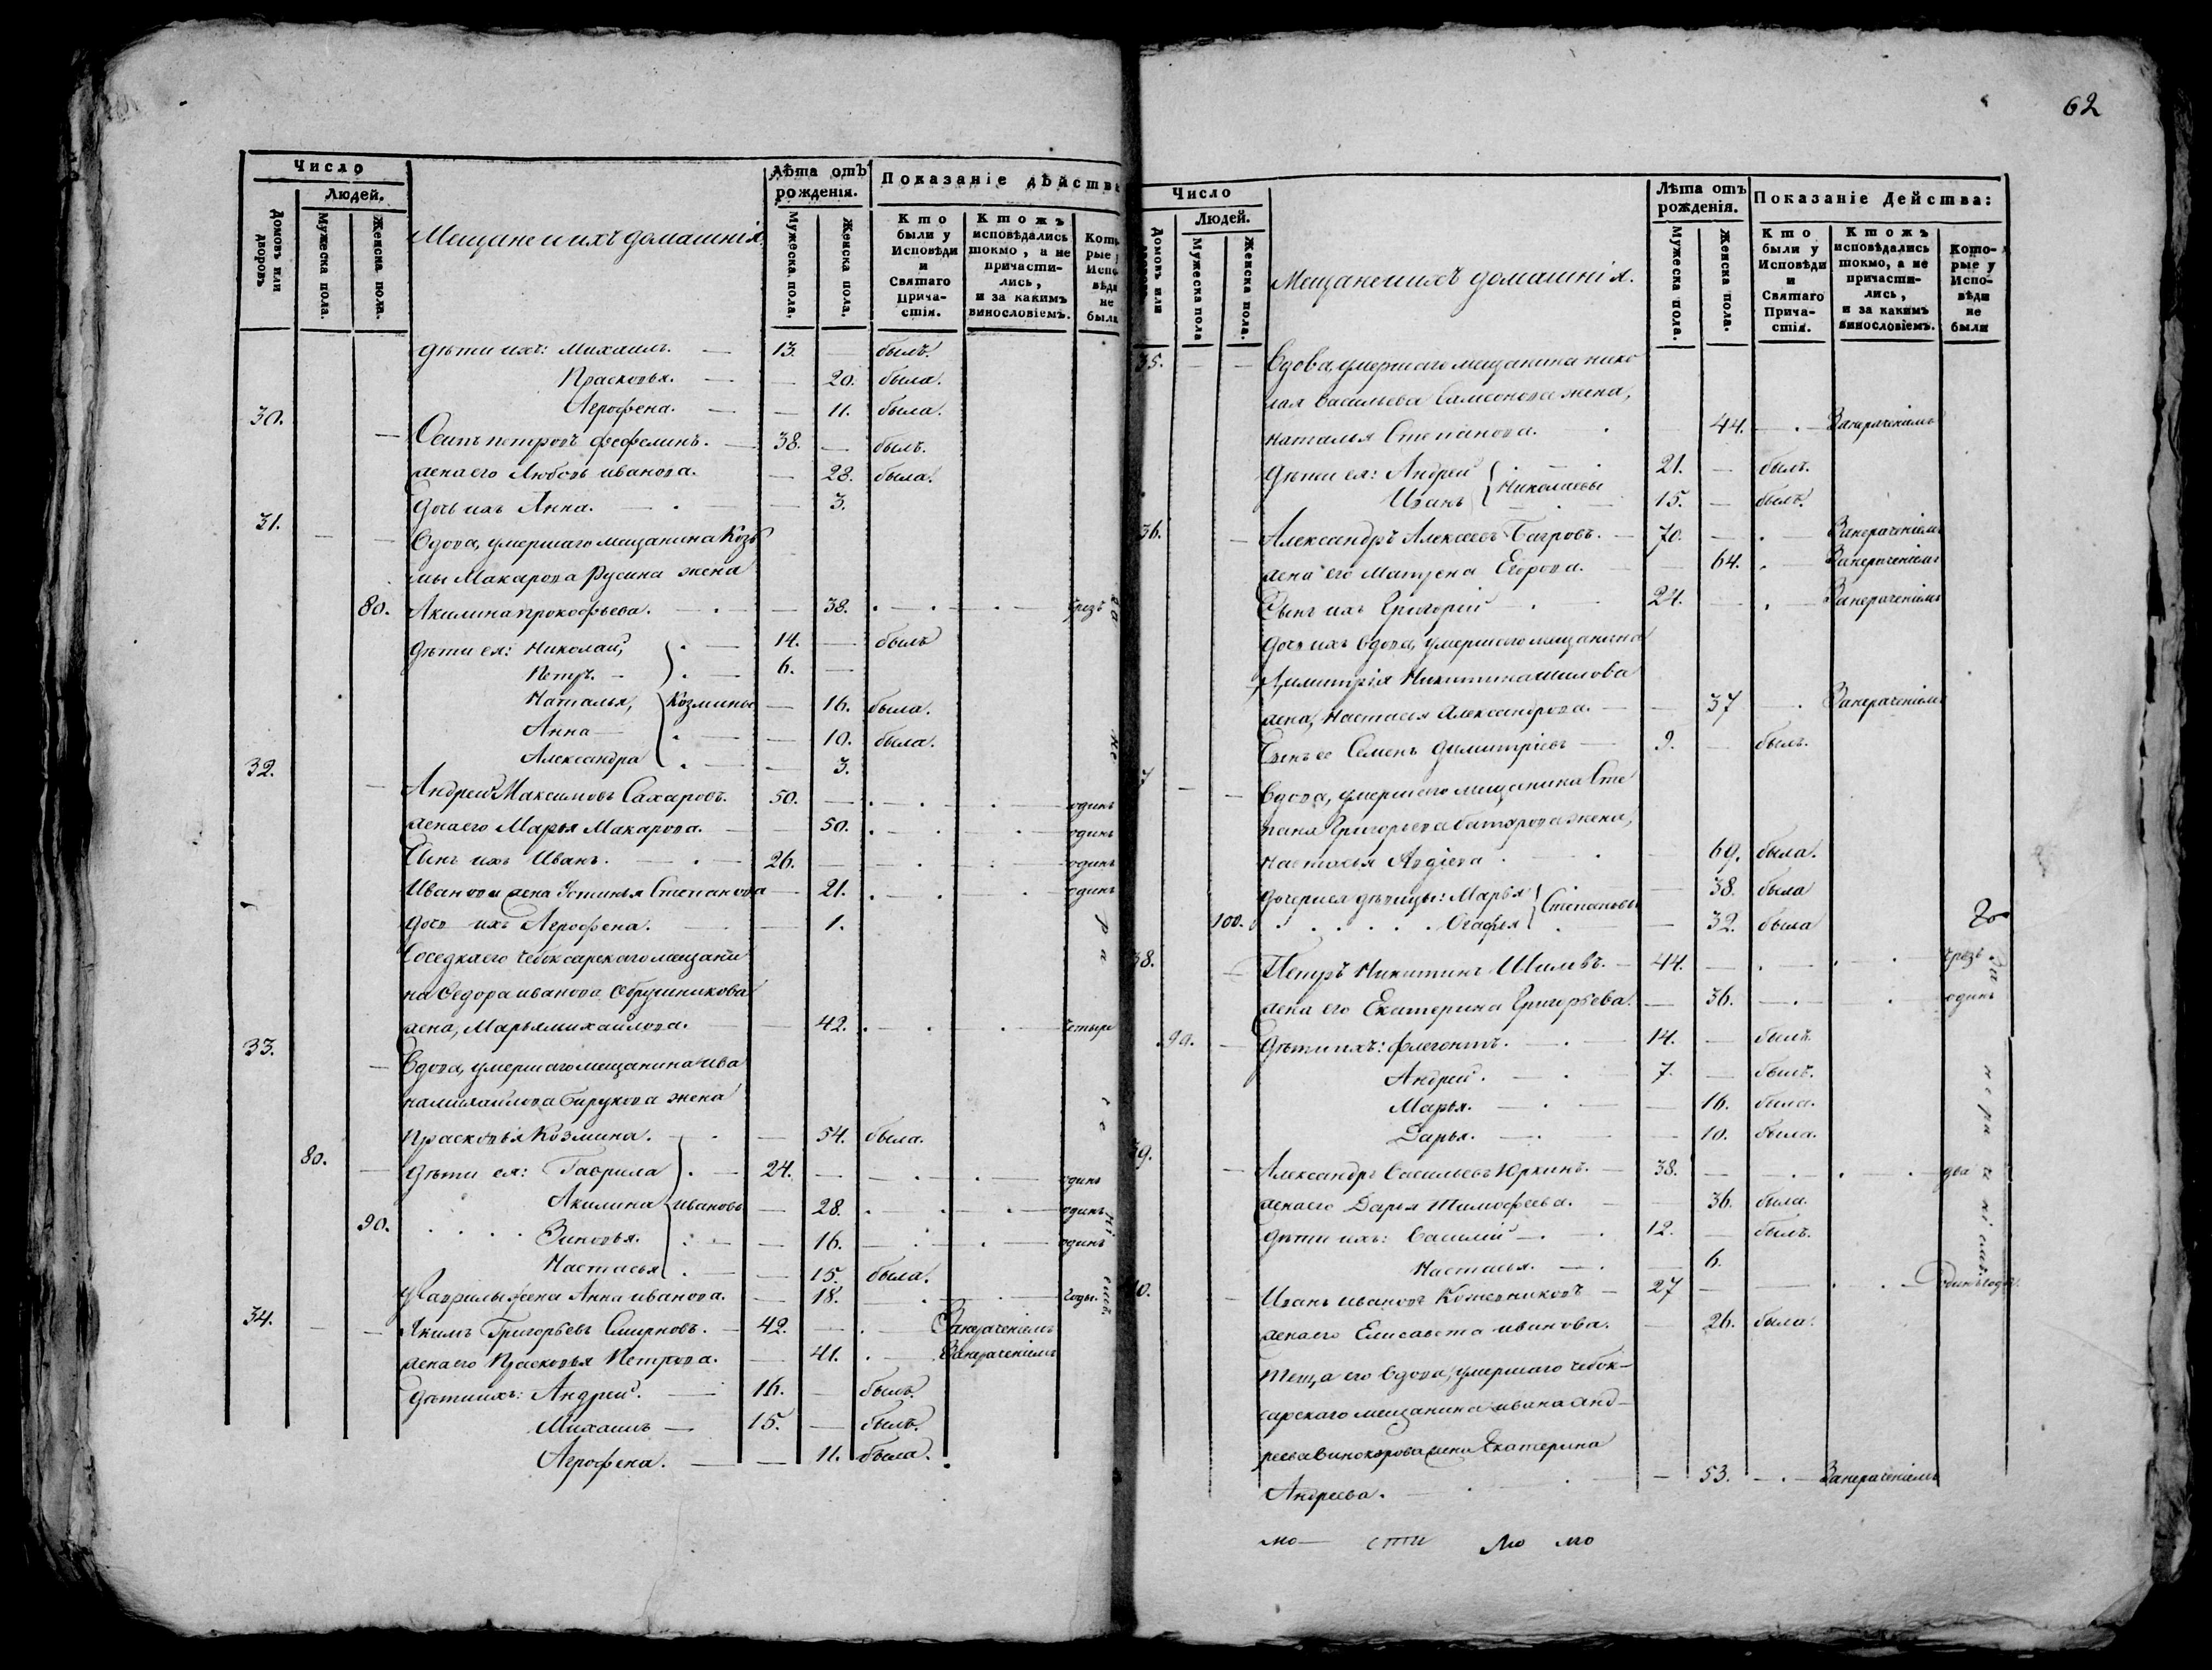 62
Число
Людей.
Домовъ или дворовъ
Мужеска пола.
Женска пола.
Мещане и ихъ домашнія
Лѣта отъ рожденія.
Мужеска пола,
Женска пола.
Показаніе дѣйств
Кто были у Исповѣди и Святаго Прича-стія.
Ктожъ исповѣдались токмо, а не причасти-лись, и за какимъ винословіемъ.
дѣти ихъ: Михаилъ. — 13. — былъ.
Прасковья. — — 20. была.
Агрофена. — — 11. была.
30. — Осипъ петровъ фефелинъ. — 38. — былъ.
жена его Любовь иванова. — 28. была.
Дочь ихъ Анна. — . — — 3.
31. — — Вдова, умершаго мещанина Козь
мы Макарова Русина жена
80. Акилина прокофьева. — . — — 38. . — . — . — чрезъ
дѣти ея: Николай, . — 14. — былъ
Петръ. — . — 6. —
Наталья, Козмины — 16. была.
Анна — . — — 10. была.
Александра . — — 3.
32. — Андрей Максимовъ Сахаровъ. 50. — . — . — . — одинъ
жена его Марья Макарова. — — 50. . — . — . — одинъ
Сынъ ихъ Иванъ. — . — 26. — — . — . — одинъ
Иванова жена Устинья Степанова — 21. . — . — . одинъ
дочь ихъ Агрофена. — — 1.
Соседка его чебоксарскаго мещани
на Федора иванова
жена, Марья михайлова. — — 42. . — . — . — четыре
33. — Вдова, умершаго мещанина ива
на михайлова Бирукова жена
Прасковья Козмина. — . — — 54. была.
80. — дѣти ея: Гаврила . — 24. — — . — . — одинъ
Акилина ивановы — 28. . — . — . — одинъ
90. . . . . Зиновья. . — — 16. — . — . — одинъ
Настасья . — — 15. была.
у Гаврилы жена Анна иванова. — 18. — . — . — годы.
34. — — Якимъ Григорьевъ Смирновъ. — 42. — . — Занераченіемъ
жена его Прасковья Петрова. — 41. . — Занераченіемъ
дѣти ихъ: Андрей. — 16. — былъ.
Михаилъ — 15. — былъ.
Агрофена. — — 11. была.
Число
Людей.
Домовъ или
Мужеска пола
Женска пола.
Мещане и ихъ домашнія.
Лѣта отъ рожденія.
Мужеска пола.
Женска пола.
Показаніе Действа:
Кто были у Исповѣди и Святаго Прича-стія.
Ктожъ исповѣдались токмо, а не причасти-лись, и за какимъ винословіемъ.
Кото-рые у Испо-вѣди не были
35. — — Вдова, умершаго мещанина нико
лая васильева Самсонова жена,
наталья Степанова. — . — 44. — . — Занераченіемъ
Дѣти ея: Андрей Николаевы 21. — былъ.
Иванъ 15. — былъ.
36. — Александръ Алексеевъ Багровъ. — 70. — . — Занераченіемъ
жена его Матрена Егорова. — — 64. . — Занераченіемъ
Сынъ ихъ Григорій — . — 24. — . — Занераченіемъ
дочь ихъ вдова, умершаго мещанина
Димитрія Никитина шилова
жена, Настасья Александрова. — — 37 — . Занераченіемъ
Сынъ ее Семенъ Димитріевъ — 9. — былъ.
7 — — Вдова, умершаго мещанина Сте
пана Григорьева жена,
Настасья Авдіева . — . — 69. была.
дочери ея дѣвицы: Марья Степановы — 38. была
100. . . . . . . Огафья — 32. была
38. — Петръ Никитинъ Шиловъ. — 44. — . — . — . чрезъ
жена его Екатерина Григорьева. — 36. — . — . одинъ
99. — Дѣти ихъ: флегонтъ. — . — 14. — былъ.
Андрей. — . — 7. — былъ.
Марья. — . — — 16. была.
Дарья. — . — — 10. была.
39. — Александръ Васильевъ Юркинъ. — 38. — — . — . — . два
жена его Дарья Тимофеева. — — 36. была.
Дѣти ихъ: Василій — . — 12. — былъ.
Настасья. — . — 6.
40. — Иванъ ивановъ Кожевниковъ — 27 — — . — . — Одинъ годъ.
жена его Елисавета иванова. — 26. была.
Теща его вдова, умершаго чебок-
сарскаго мещанина ивана Анд-
реева Винокорова жена Екатерина
Андреева. — . — . — — 53. — . — Занераченіемъ
мо— сти Мо мо